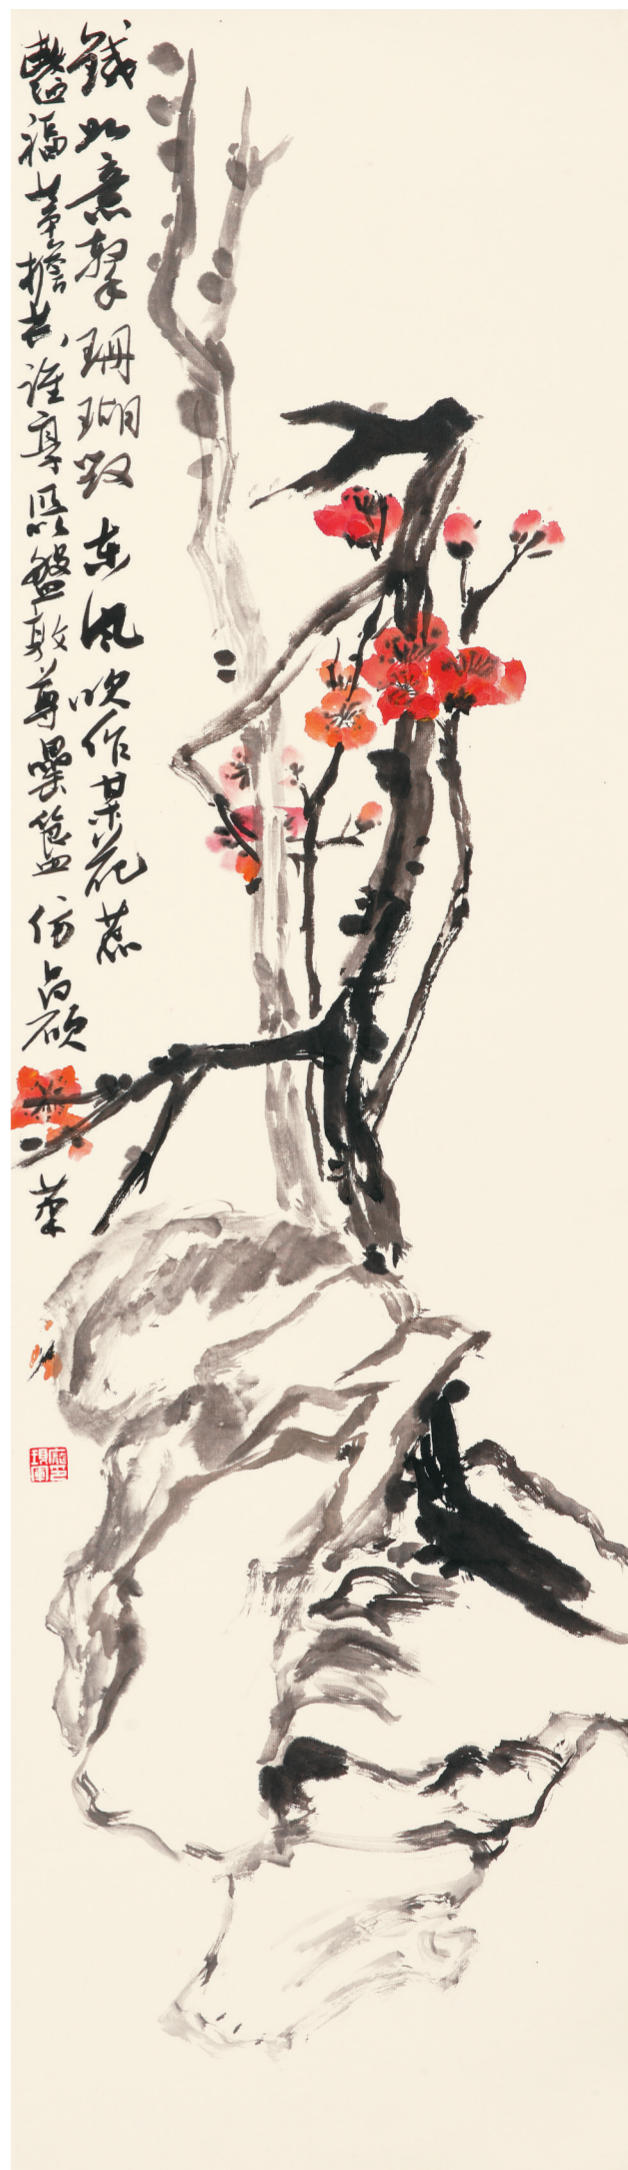 鐵如意擊珊瑚毀東風吹作某花蕊
豔福茅檐共誰享匹以盤敦尊罍簋仿昌碩